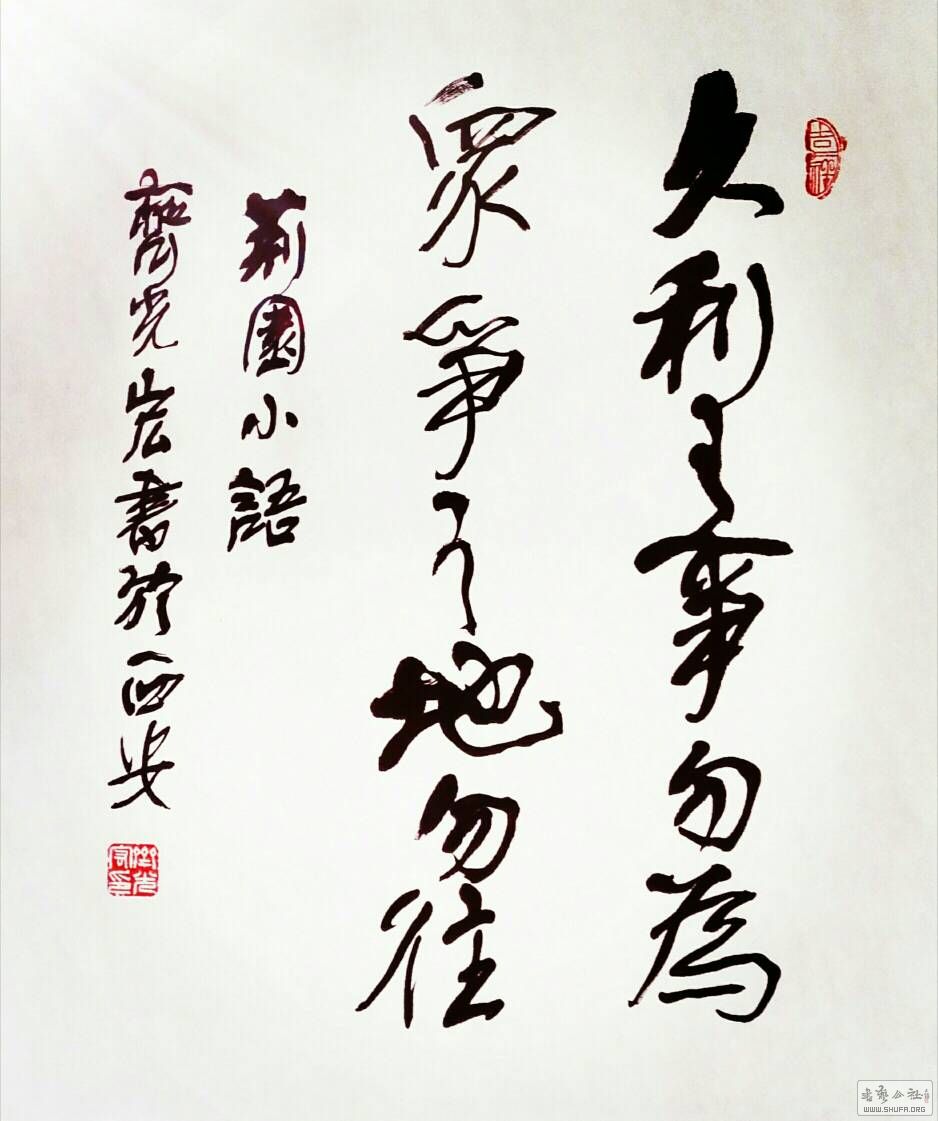 吉祥
久利之事勿為
眾爭之地勿往
荊園小語
齊光書於西安
書藝公社
WWW.SHUFA.ORG